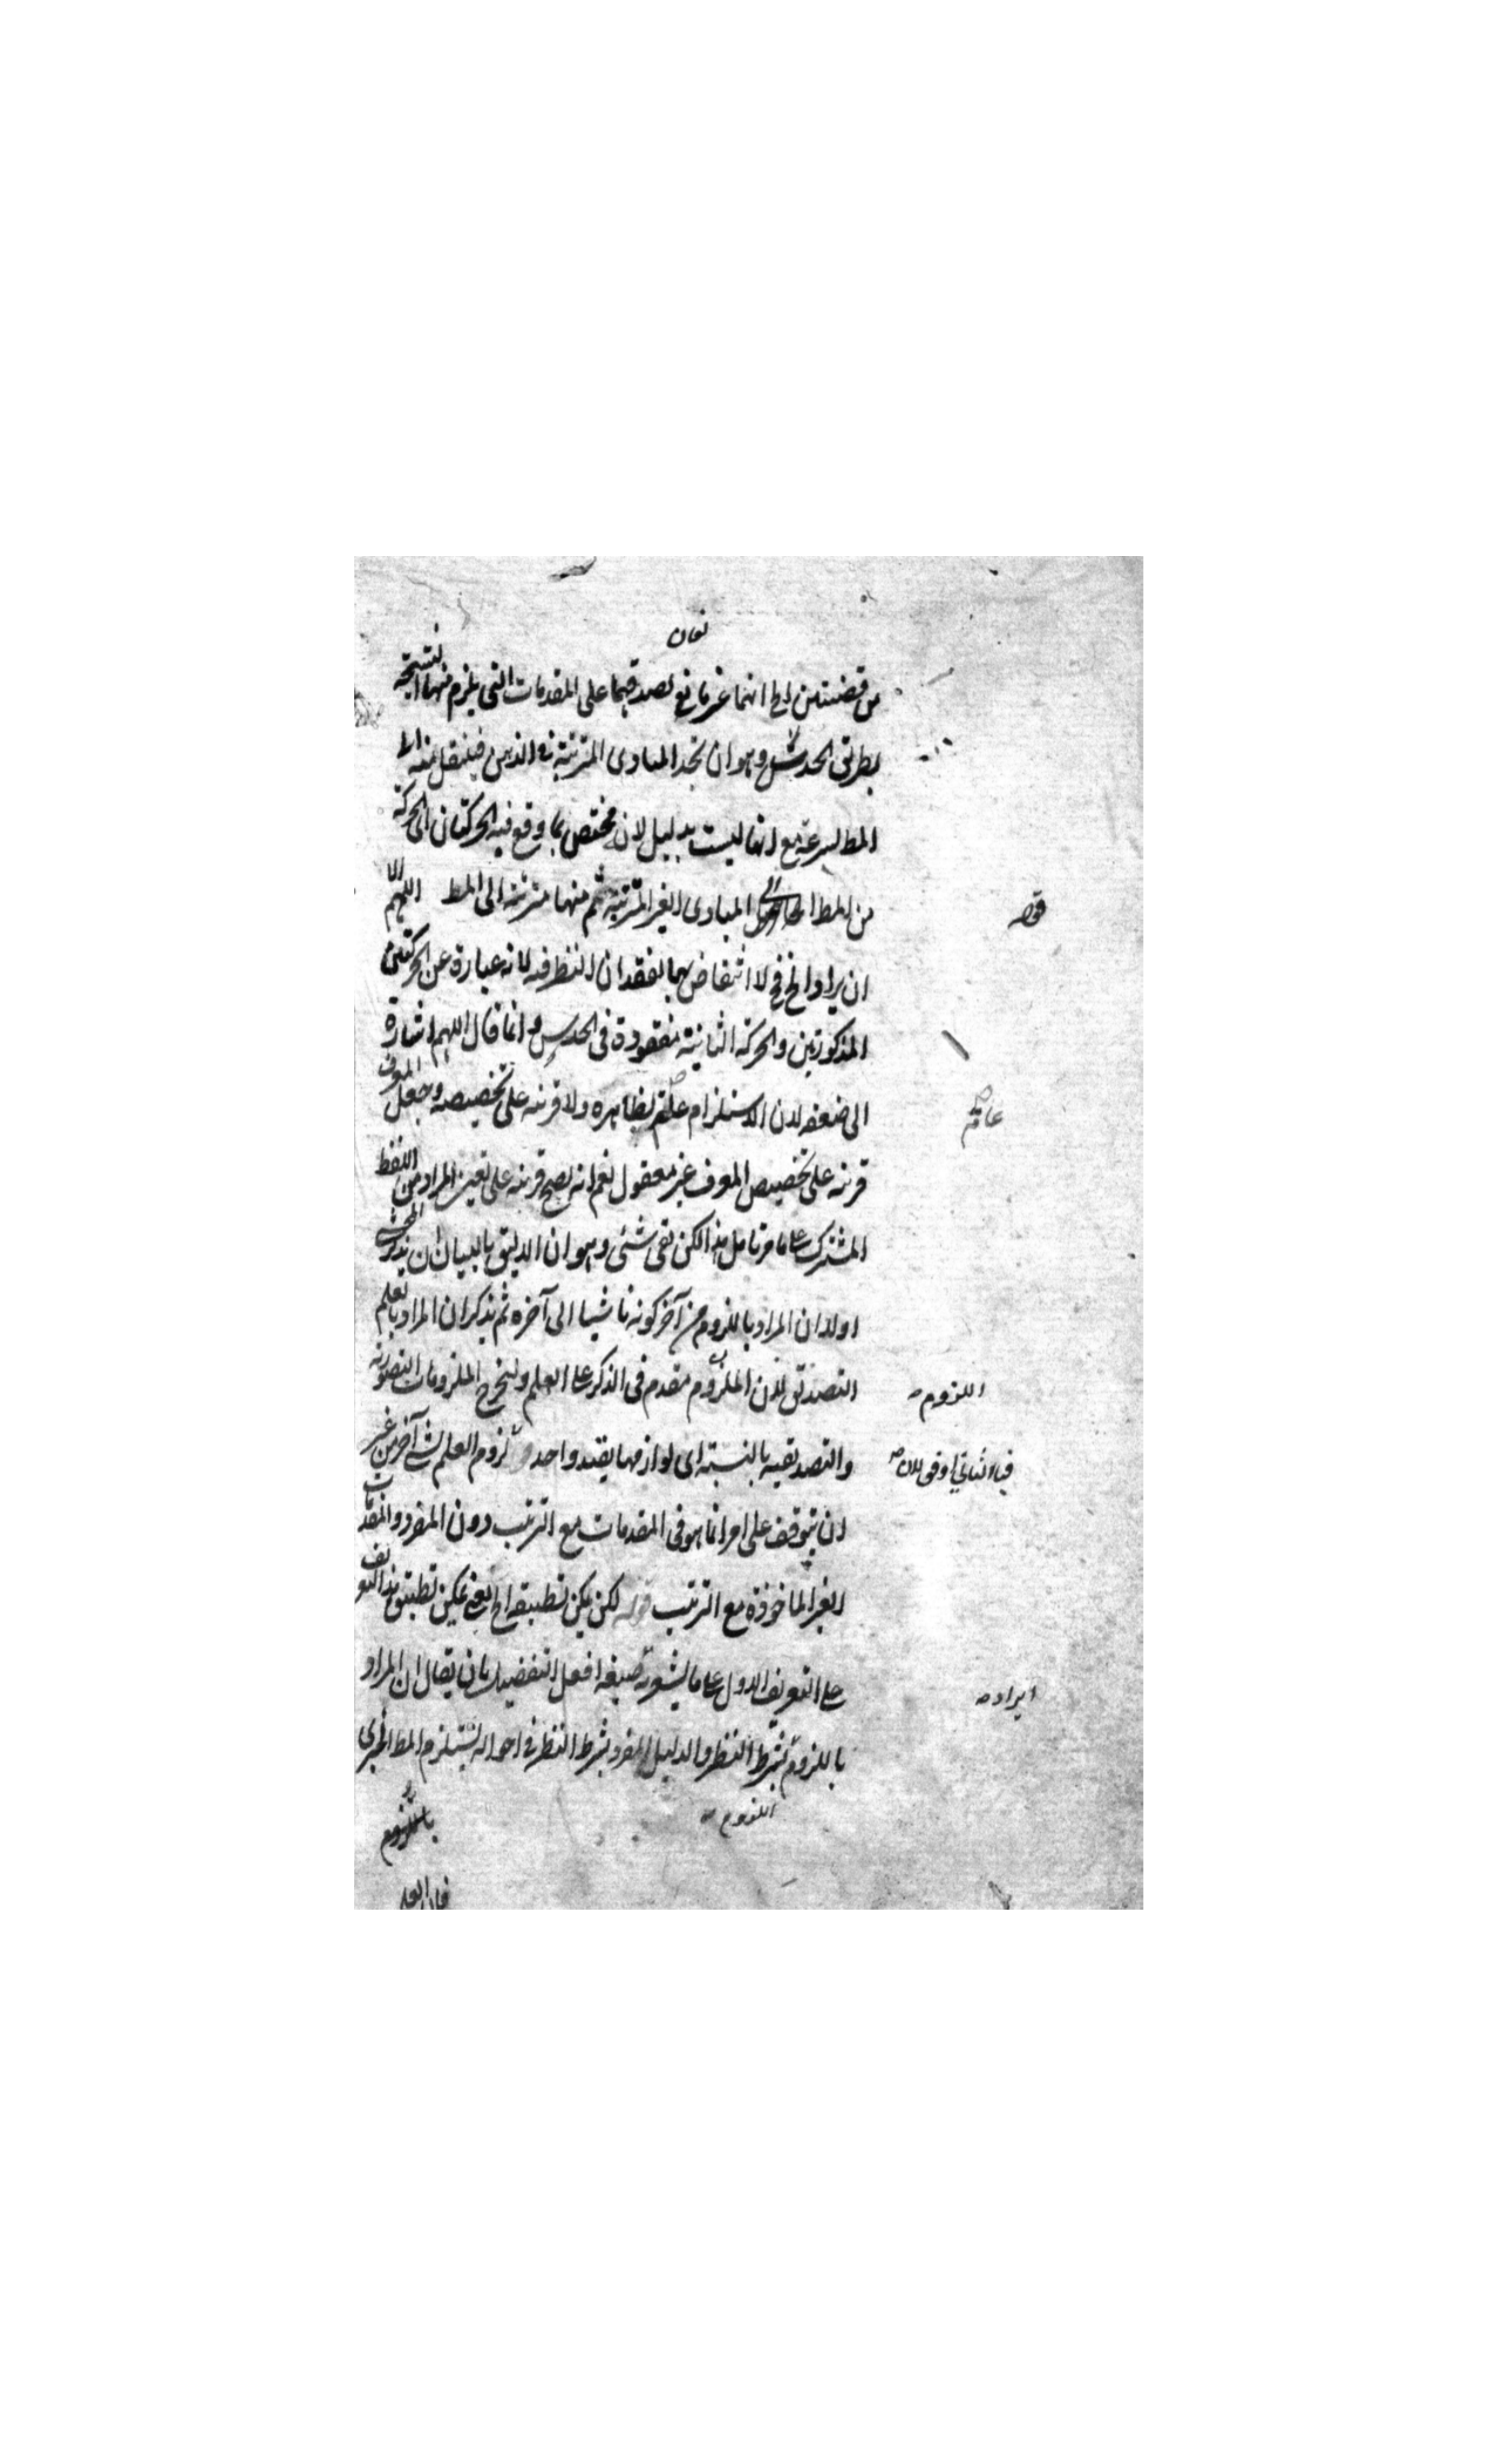 من قضيتين الخ انهما غير مانع لصدقهما على المقدمات التي يلزم منها النتيجة
بطريق الحدس وهو ان تجد المبادى المترتبة في الذهن فينتقل منه الى
المط بسرعة مع انها ليست بدليل لان مختص بما وقع فيه الحركتان اى الحركة
من المط الى المبادى الغير المترتبة ثم منها مترتبة الى المط اللهم الا
ان يراد الخ فح لا انتقاض بها لفقدان النظر فيه لانه عبارة عن الحركتين
المذكورتين والحركة الثانية مفقودة فى الحدس و انما قال اللهم اشارة
الى ضعفه لان الاستلزام عام بظاهره ولا قرينة على تخصيصه وجعل المعرف
قرينة على تخصيص المعرف غير معقول نعم انه يصح قرينة على تعين المراد من اللفظ
المشترك على ما مر تامل هذا لكن بقى شئى وهو ان الاليق بالبيان ان يذكر المحشى
اولا ان المراد باللزوم من آخر كونه ناشيا الى آخره ثم يذكر ان المراد بالعلم
التصديق لان الملزوم مقدم فى الذكر على العلم وليخرج الملزومات التصورية
والتصديقية بالنسبة الى لوازمها بقيد واحد و لزوم العلم بشى آخر من غير
ان يتوقف على امر انما هو فى المقدمات مع الترتيب دون المفرد والمقدمات
الغير الماخوذة مع الترتيب قوله لكن يمكن تطبيقه الخ يعني يمكن تطبيق هذا التعريف
على التعريف الاول على ما يشعر به صيغة افعل التفضيل بان يقال ان المراد
باللزوم بشرط النظر والدليل المفرد بشرط النظر في احواله يستلزم المط الخبرى
اللزوم
عام
ايراد
اللزوم